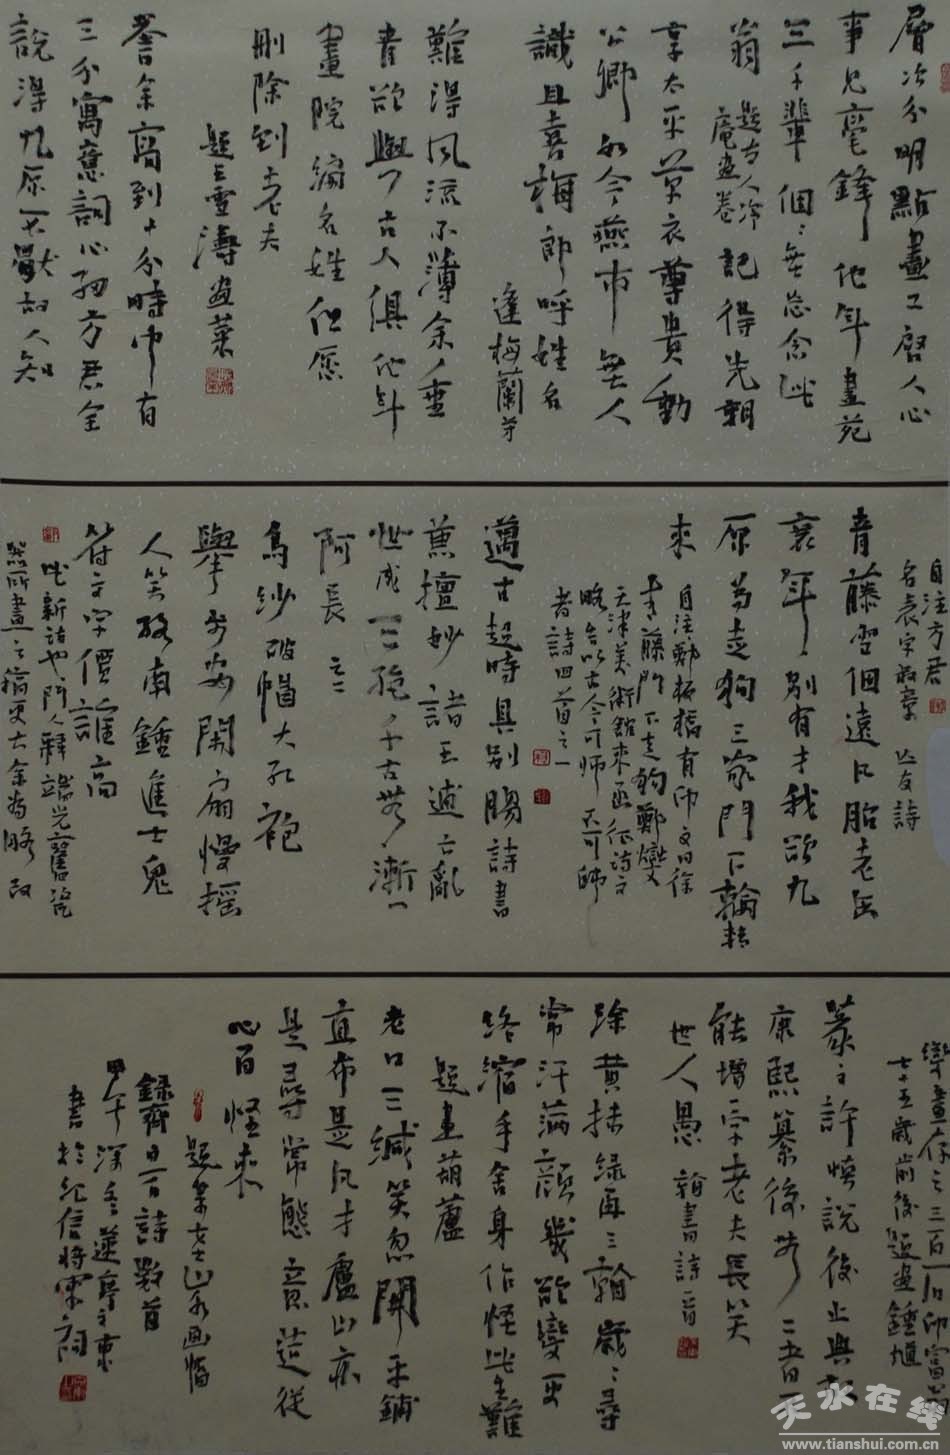 層次分明點畫工啓人心
事見毫鋒他年畫苑
三千輩個々無忘念此
翁
題古人冷
庵畫卷
記得先朝
享太平草衣尊貴動
公卿如今燕市無人
識且喜梅郎呼姓名
逢梅蘭芳
難得風流不薄余々垂
青欲與々古人俱他年
畫院編名姓但愿
刪除到老夫
題王雪濤畫菜
譽余高到十分時中有
三分寓意詞心細方君全
說得九原一哭故人知
自注方君
名表字叔章 亡友詩
青藤雪個遠凡胎老缶
衰年別有才我欲九
原為走狗三家門下輪轉
來
自注鄭板橋有印文曰徐
青藤門下走狗鄭燮
天津美術館來函征詩文
略台以古今可師不可師
者詩四首之一
邁古超時具別腸詩書
薰擅妙諸王逋亡亂
世成三絕千古無慚一
阿長 之二
烏紗破帽大紅袍
舉步安閒扇慢搖
人笑終南鍾進士鬼
符文字價誰高
此新詩也門人釋瑞光舊瓷
然所畫之稿更大余為略改
幾畫存之三百石印富翁
七十五歲前後題畫鍾馗
篆文許慎說後止典
康熙纂後無二五百一
能增一字老夫長笑
世人愚 翰書詩一首
涂黃抹綠再三翰歲々尋
常汗滿顏幾欲變更
終縮手舍身作怪此生難
題畫葫蘆
老口三緘笑忽開平鋪
直布是凡才廬山亦
是尋常態意造從
心百怪來
題某女士山水画幅
錄齊白石詩數首
甲午深冬蓮亭之東
書於紀信將軍祠
天水在线
www.tianshui.com.cn